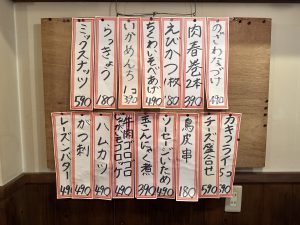 のざわなづけ 390
肉春巻 2本 390
えびかつ 1枚 180
ちくわいそべあげ 490
いかめんち 1コ 390
らっきょう 180
ミックスナッツ 590
カキフライ 5コ 590
チーズ盛合せ 590
鳥皮串 180
ソーセージいため 490
玉こんにゃく煮 390
牛肉ゴロゴロじゃがコロッケ 490
ハムカツ 490
がつ刺 490
レーズンバター 490